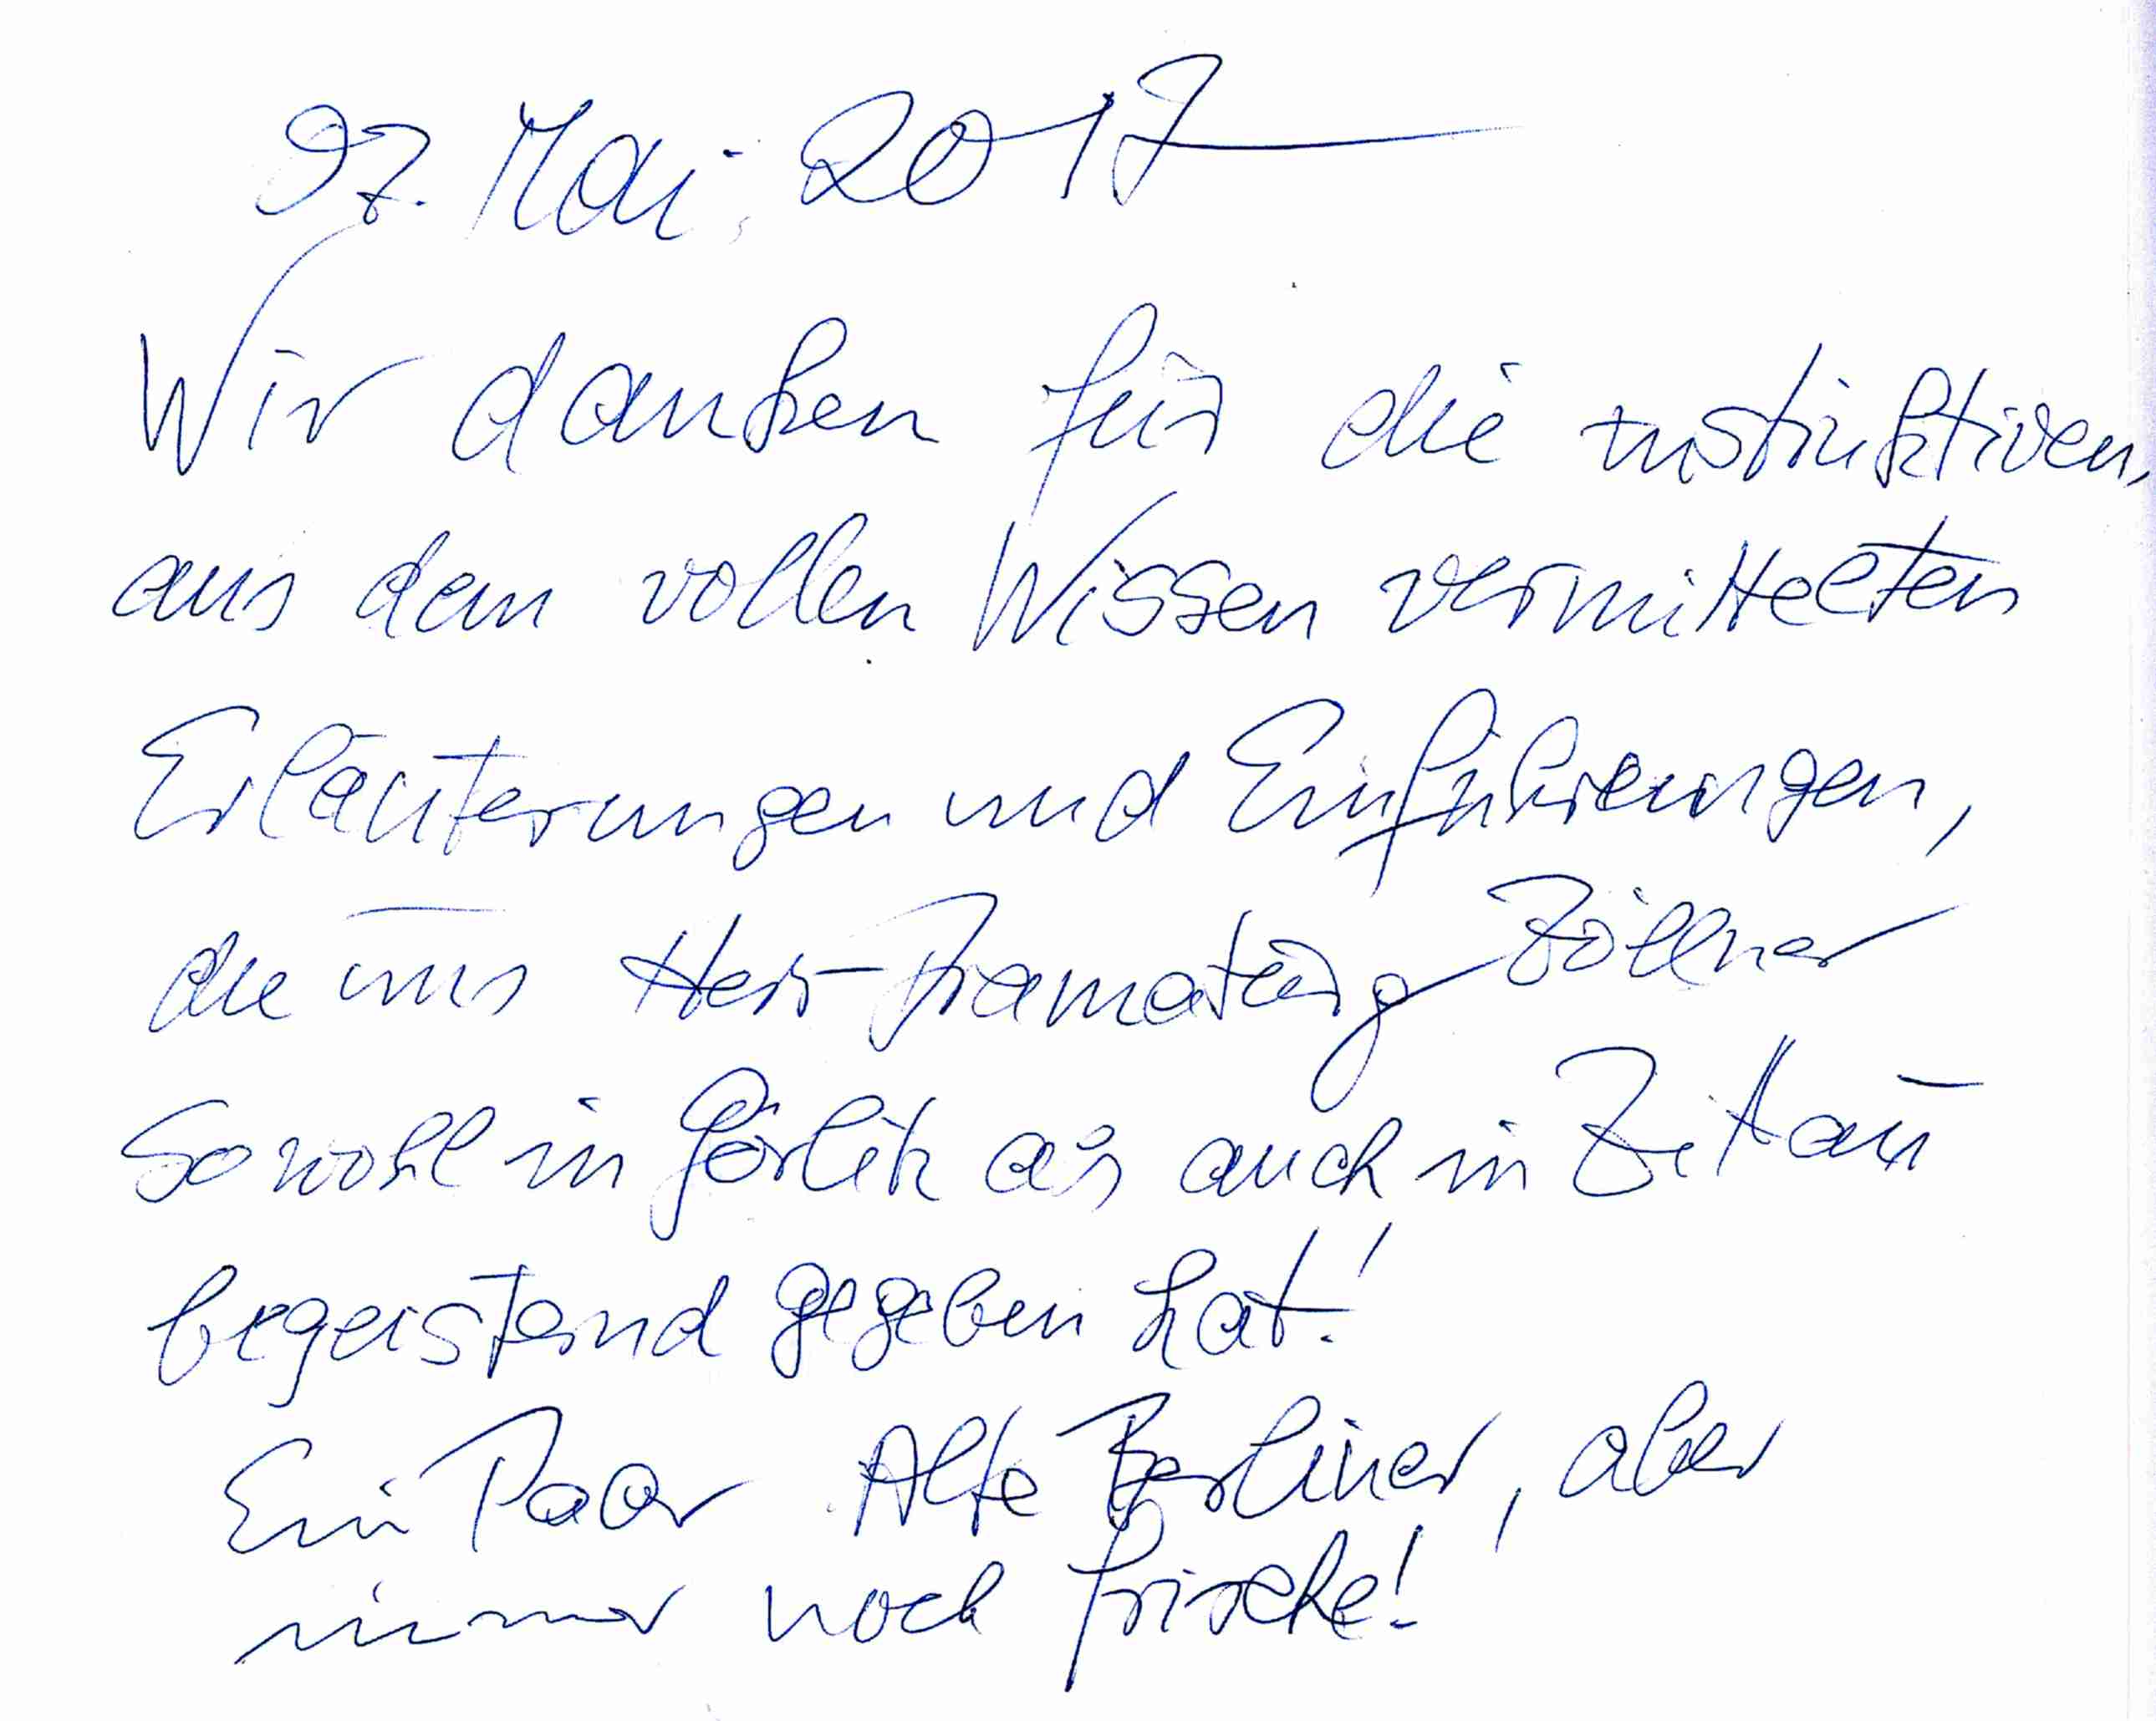 27. Mai. 2017
Wir danken für die instruktiven,
aus dem vollen Wissen vermittelten
Erläuterungen und Einführungen,
die uns Herr Dramaturg Zöllner
sowohl in Görlitz als auch in Zittau
begeisternd gegeben hat!
Ein Paar Alte Berliner, aber
immer noch frische!